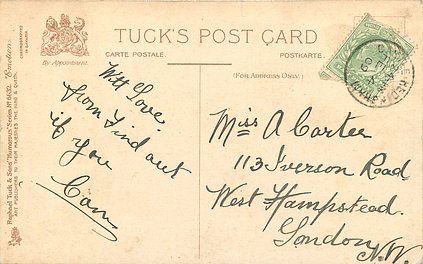 TUCK'S POST CARD
CARTE POSTALE.
POSTKARTE.
By Appointment.
(FOR ADDRESS ONLY.)
With Love.
from Find out
if you
Can
Miss A Carter
113 Iverson Road
West Hampstead.
London
N.W.
Raphael Tuck & Sons' "Humorous" Series
ART PUBLISHERS TO THEIR MAJESTIES THE KING & QUEEN.